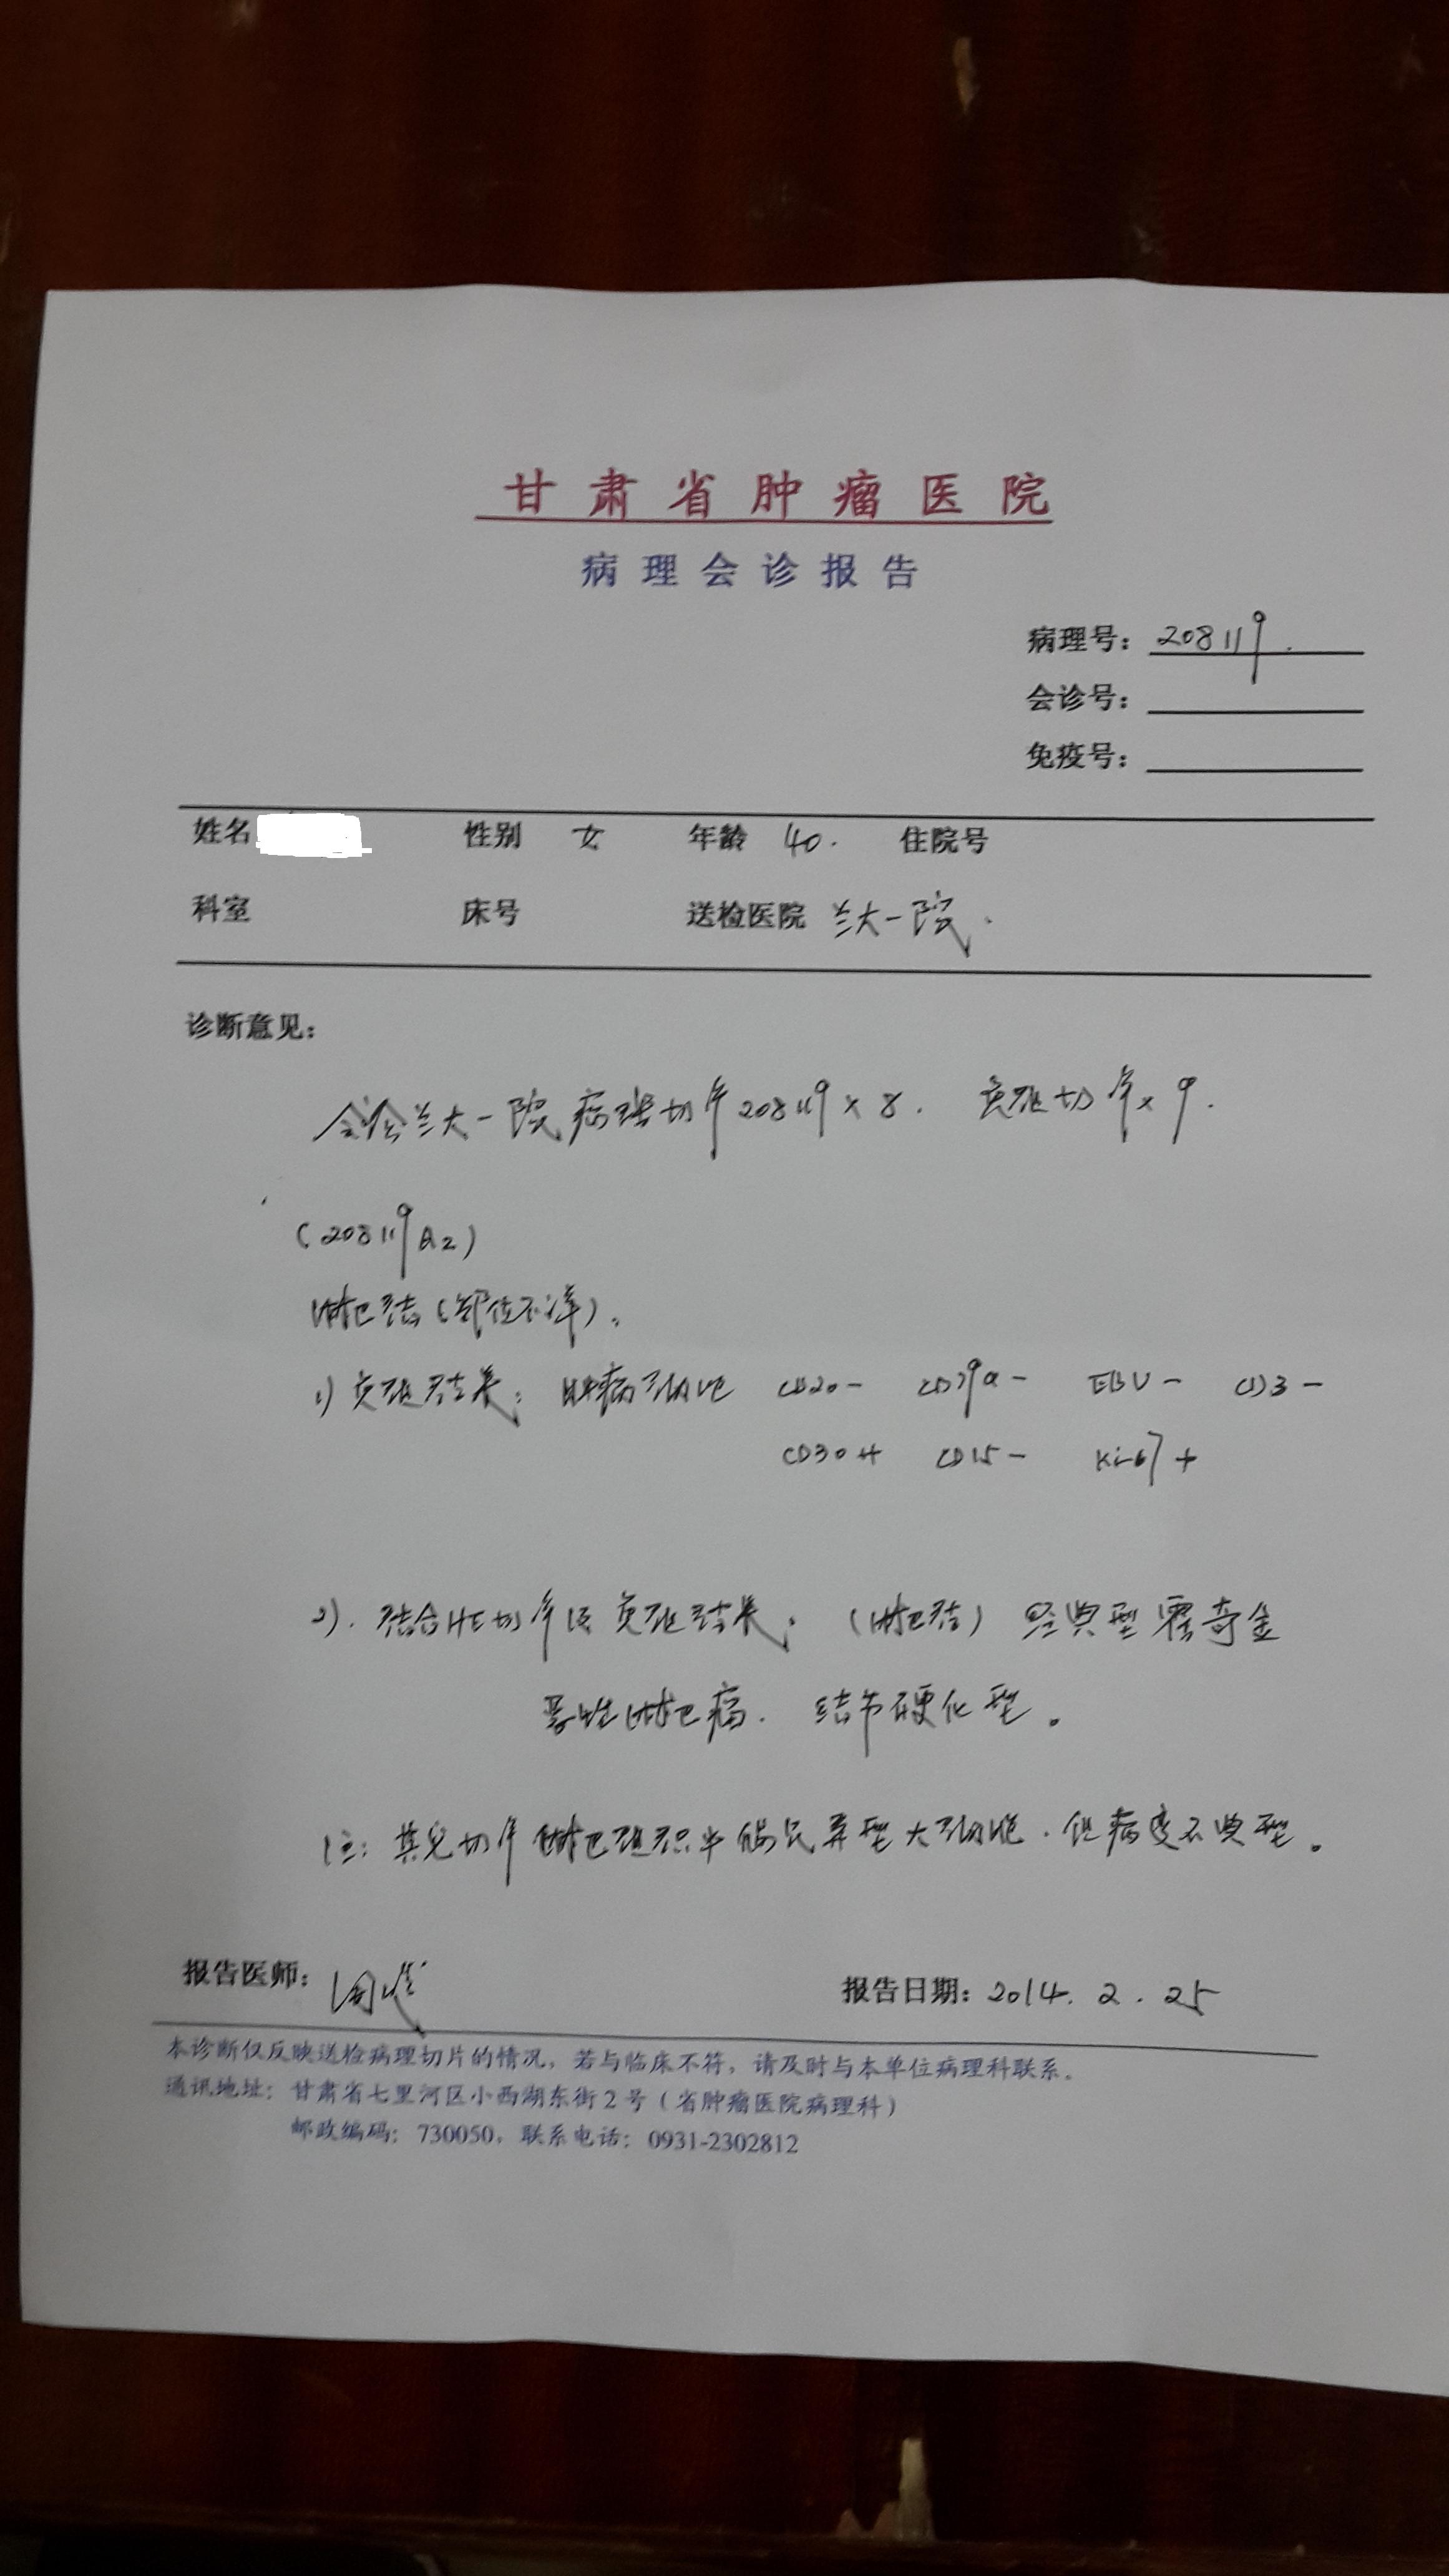 甘肃省肿瘤医院
病理会诊报告
病理号: 208119.
会诊号:
免疫号:
姓名 性别 女 年龄 40. 住院号
科室 床号 送检医院 兰大一院.
诊断意见:
会诊兰大一院病理切片208119×8. 免疫切片×9.
(208119A2)
淋巴结(部位不详)。
1) 免疫结果: 肿瘤细胞 CD20- CD79a- EBV- CD3-
CD30+ CD15- Ki-67+
2). 结合HE切片及免疫结果: (淋巴结) 经典型霍奇金
恶性淋巴瘤. 结节硬化型。
注: 其它切片淋巴组织中偶见异型大细胞. 但病变不典型。
报告医师: 报告日期: 2014. 2. 25
本诊断仅反映送检病理切片的情况, 若与临床不符, 请及时与本单位病理科联系。
通讯地址: 甘肃省七里河区小西湖东街2号(省肿瘤医院病理科)
邮政编码: 730050, 联系电话: 0931-2302812